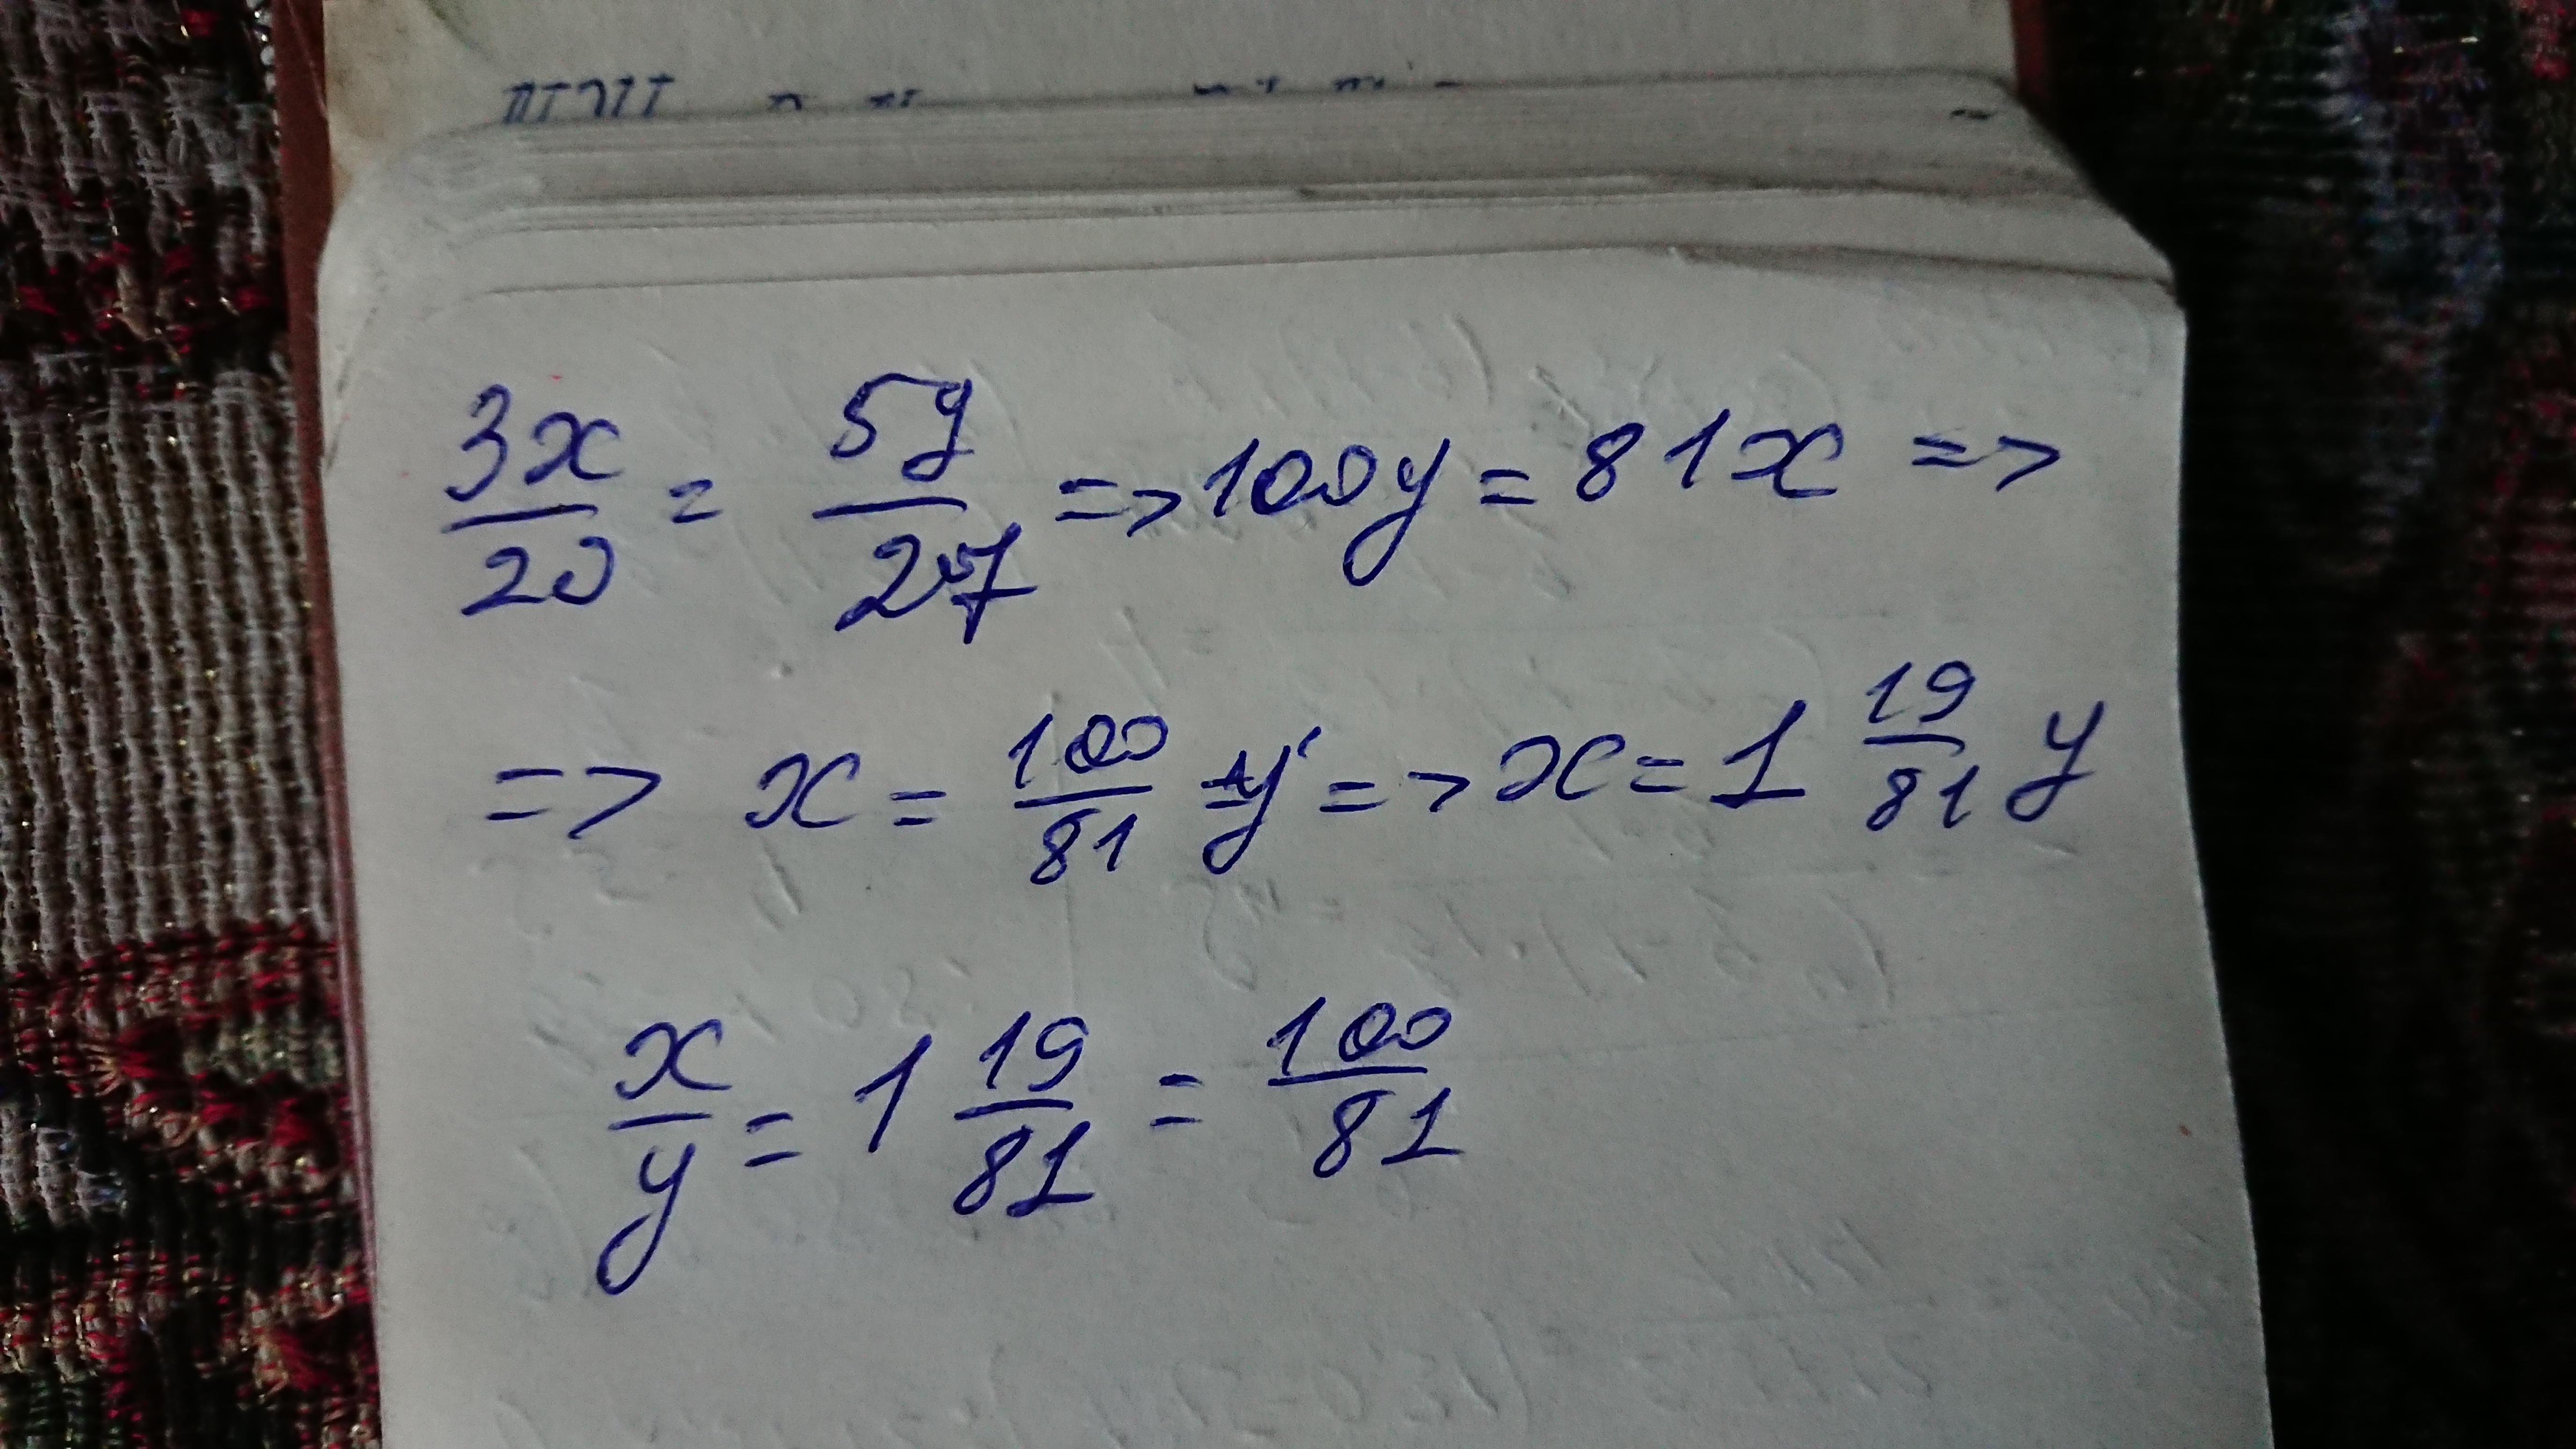 3x/20 = 5y/27 => 100y = 81x =>
=> x = 100/81 y => x = 1 19/81 y
x/y = 1 19/81 = 100/81